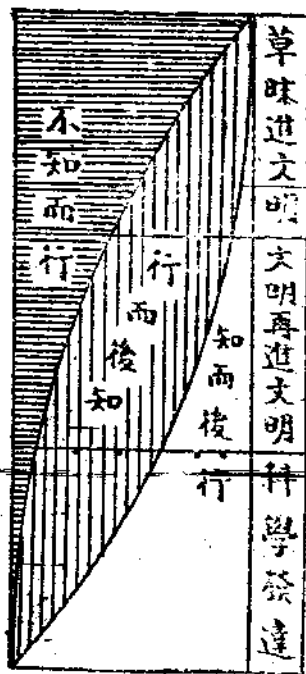 草昧進文明
文明再進文明
科學發達
知而後行
行而後知
不知而行